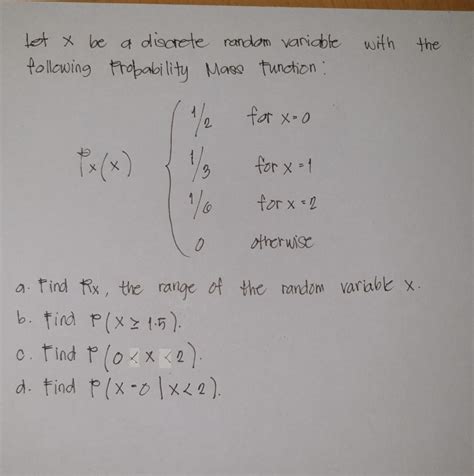 Let x be a discrete random variable with the
following Probability Mass Function:
Px(x) { 1/2 for x=0
1/3 for x=1
1/6 for x=2
0 otherwise
a. Find Rx, the range of the random variable x.
b. Find P(x ≥ 1.5).
c. Find P(0 < x < 2).
d. Find P(x=0 | x<2).